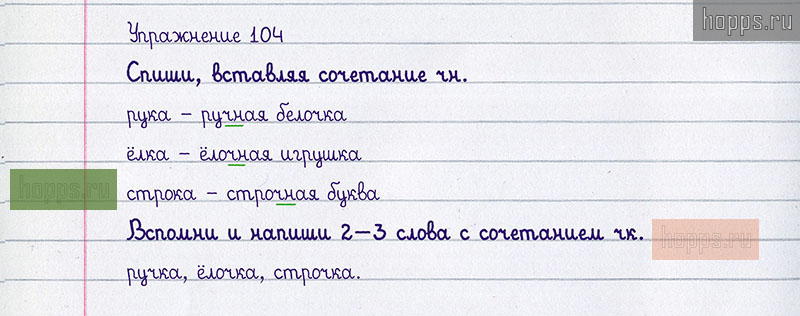 hopps.ru
Упражнение 104
Спиши, вставляя сочетание чн.
рука – ручная белочка
ёлка – ёлочная игрушка
hopps.ru
строка – строчная буква
Вспомни и напиши 2–3 слова с сочетанием чк.
hopps.ru
ручка, ёлочка, строчка.